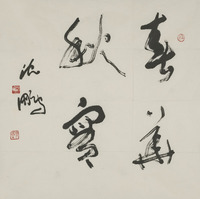 春華
秋實
沈鵬